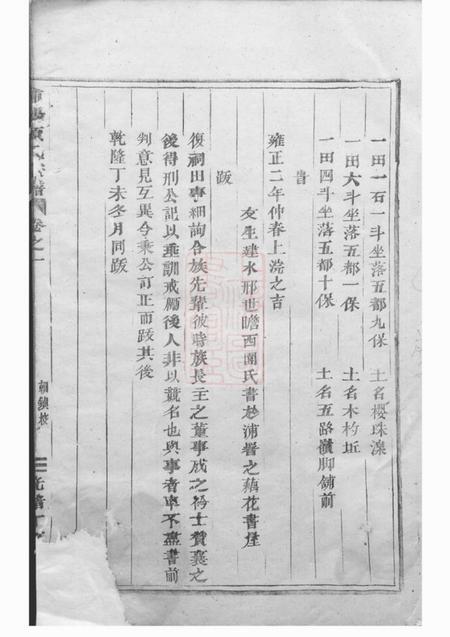 一田一石一斗坐落五都九保　土名櫻珠澳
一田六斗坐落五都一保　土名木杓坵
一田四斗坐落五都十保　土名五路嶺脚鋪前
旹
雍正二年仲春上澣之吉
友生建水邢世瞻西園氏書於浦晉之藕花書屋
跋
復祠田事細詢合族先輩彼時族長主之董事成之衿士贊襄之
後得刑公記以垂訓戒勵後人非以競名也與事者率不盡書前
刿意見互異今秉公訂正而跋其後
乾隆丁未冬月同跋
卷之一